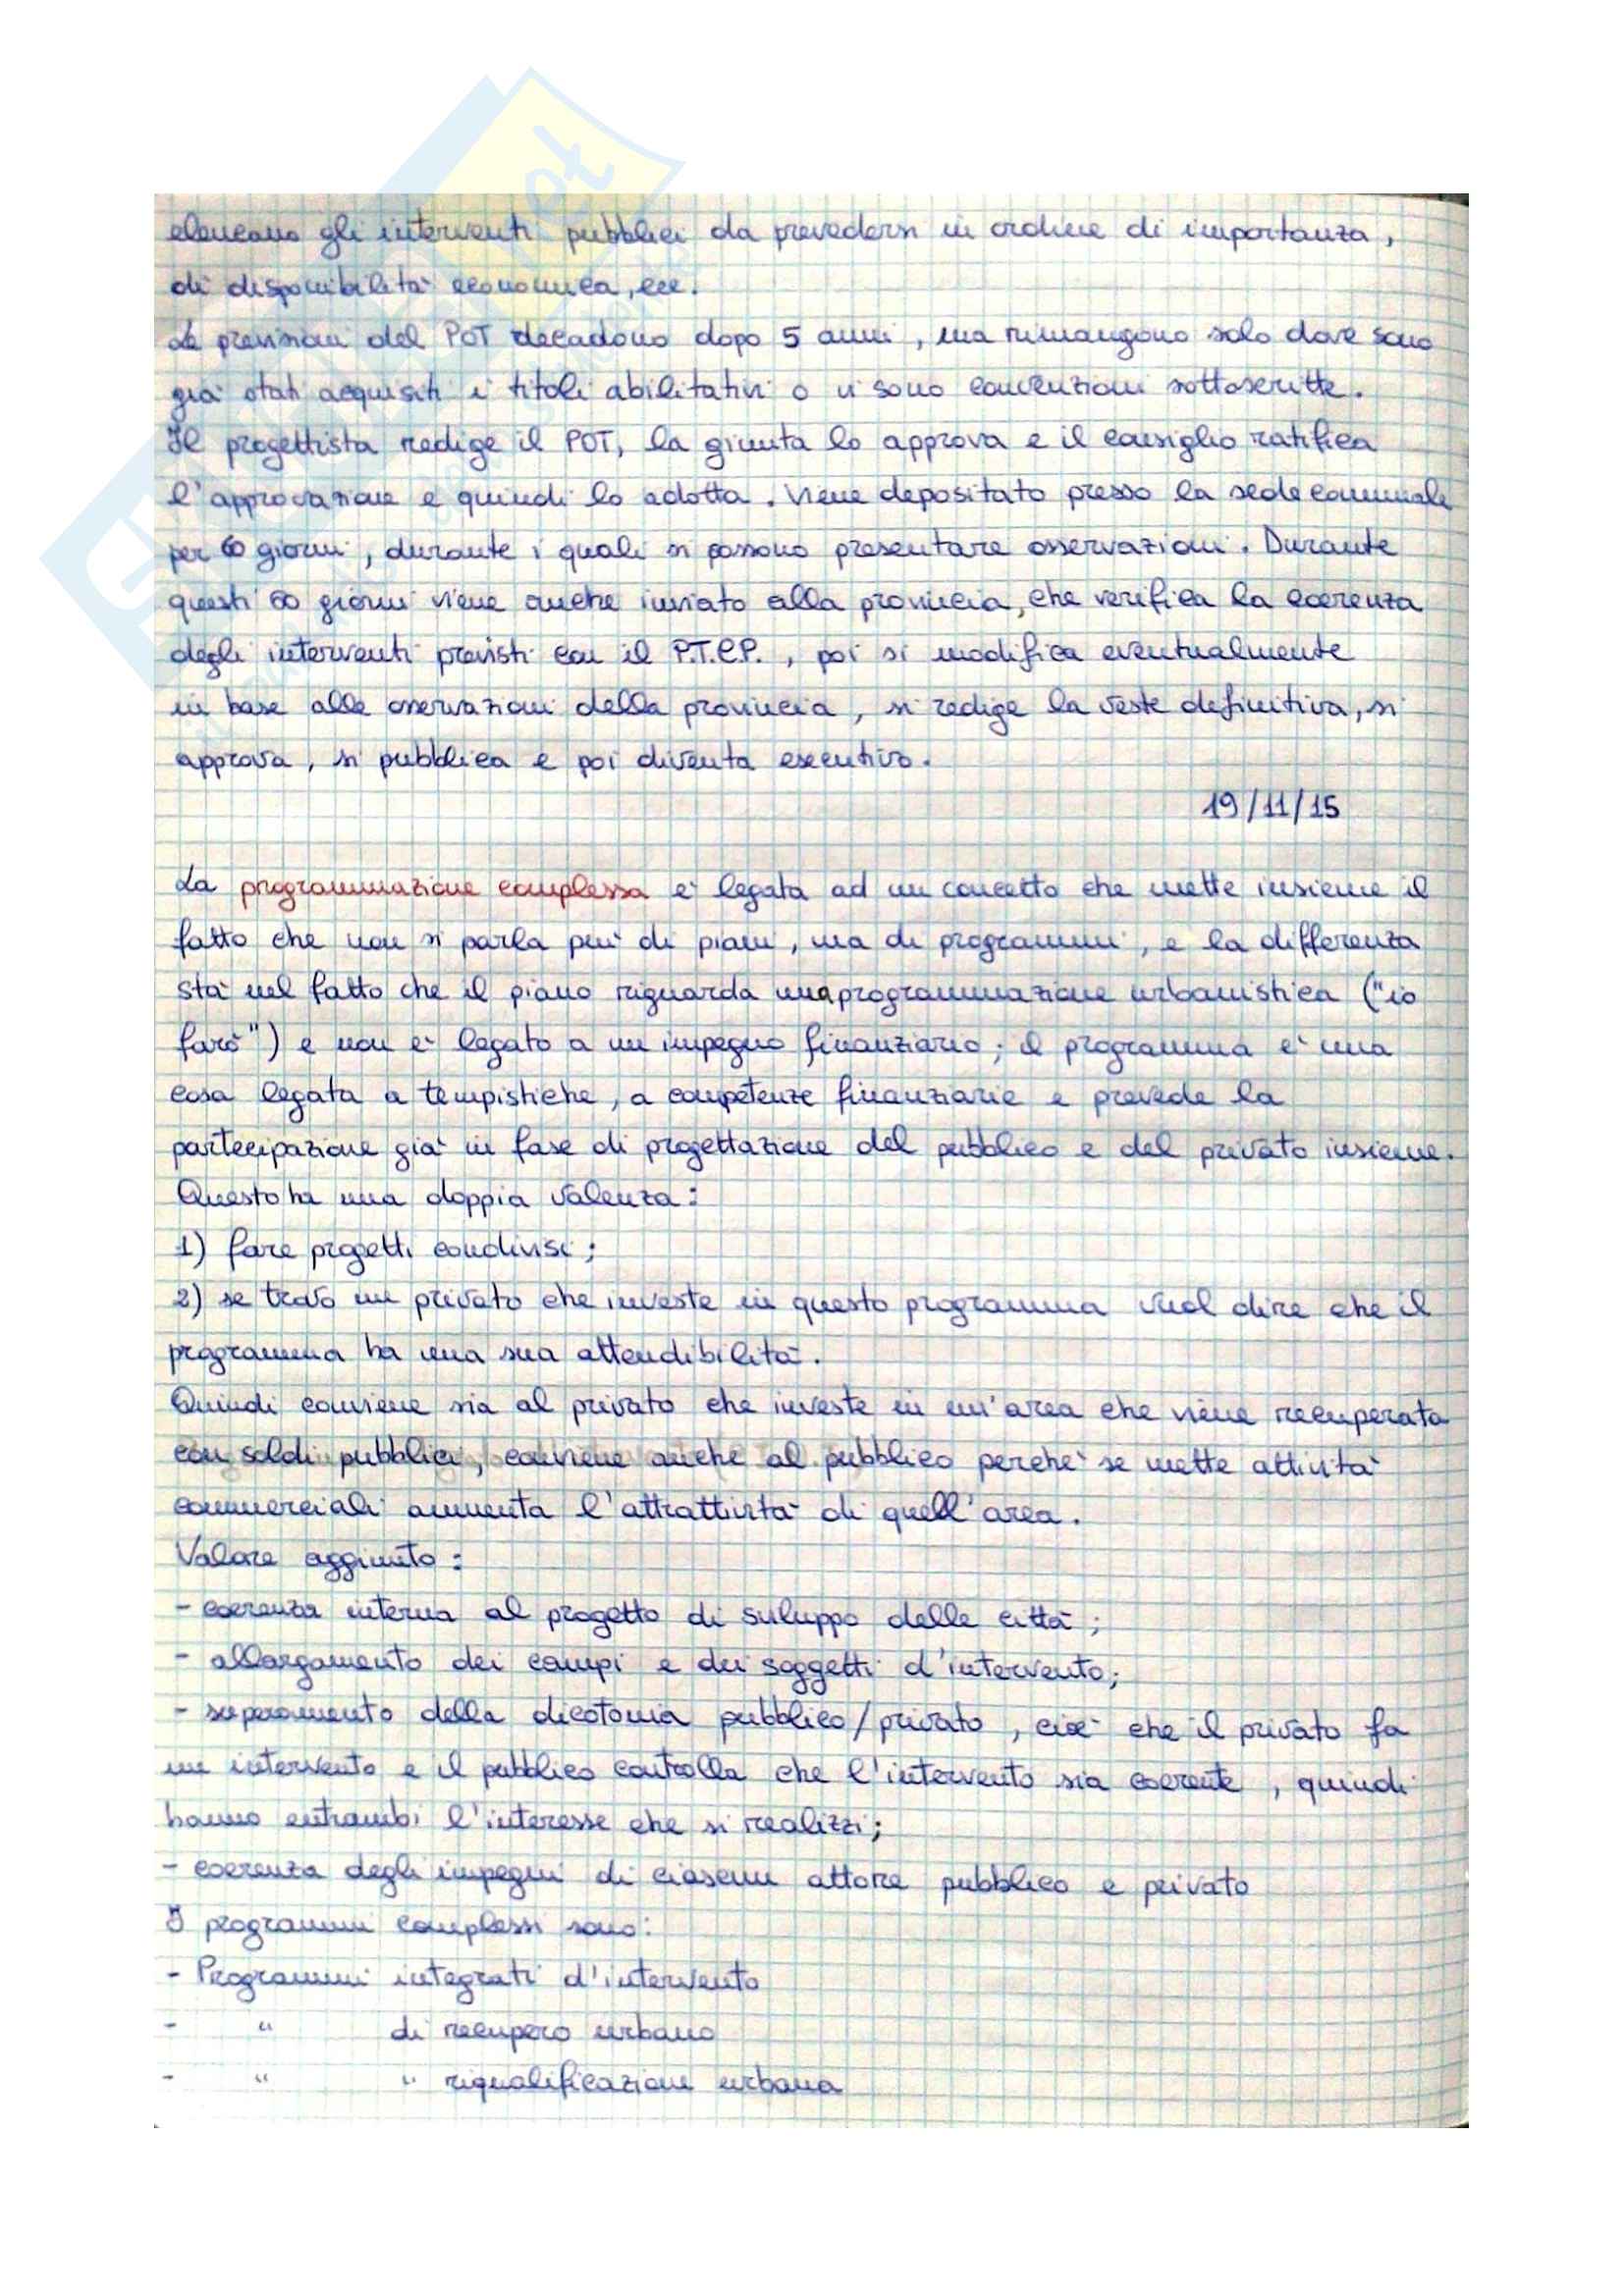 elencano gli interventi pubblici da prevedersi in ordine di importanza,
di disponibilità economica, ecc.
Le previsioni del POT decadono dopo 5 anni, ma rimangono solo dove sono
già stati acquisiti i titoli abilitativi o vi sono convenzioni sottoscritte.
Il progettista redige il POT, la giunta lo approva e il consiglio ratifica
l'approvazione e quindi lo adotta. Viene depositato presso la sede comunale
per 60 giorni, durante i quali si possono presentare osservazioni. Durante
questi 60 giorni viene anche inviato alla provincia, che verifica la coerenza
degli interventi previsti con il P.T.C.P., poi si modifica eventualmente
in base alle osservazioni della provincia, si redige la veste definitiva, si
approva, si pubblica e poi diventa esecutivo.
19/11/15
La programmazione complessa è legata ad un concetto che mette insieme il
fatto che non si parla più di piani, ma di programmi, e la differenza
stà nel fatto che il piano riguarda una programmazione urbanistica ("io
farò") e non è legato a un impegno finanziario; il programma è una
cosa legata a tempistiche, a competenze finanziarie e prevede la
partecipazione già in fase di progettazione del pubblico e del privato insieme.
Questo ha una doppia valenza:
1) fare progetti condivisi;
2) se trovo un privato che investe in questo programma vuol dire che il
programma ha una sua attendibilità.
Quindi conviene sia al privato che investe in un'area che viene recuperata
con soldi pubblici, conviene anche al pubblico perchè se mette attività
commerciali aumenta l'attrattività di quell'area.
Valore aggiunto:
- coerenza interna al progetto di sviluppo delle città;
- allargamento dei campi e dei soggetti d'intervento;
- superamento della dicotomia pubblico/privato, cioè che il privato fa
un intervento e il pubblico controlla che l'intervento sia coerente, quindi
hanno entrambi l'interesse che si realizzi;
- coerenza degli impegni di ciascun attore pubblico e privato
I programmi complessi sono:
- Programmi integrati d'intervento
- " di recupero urbano
- " " riqualificazione urbana